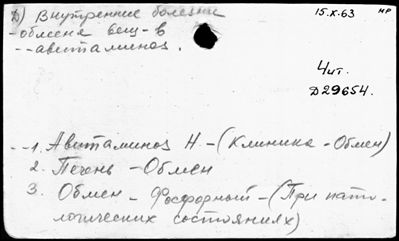 Д) Внутренние болезни
15.X.63 НР
-обмена вещ-в
--авитаминоз.
Чит.
D29654.
--1. Авитаминоз Н-(Клиника-Обмен)
2. Печень-Обмен
3. Обмен-Фосфорный-(При пато-
логических состояниях)